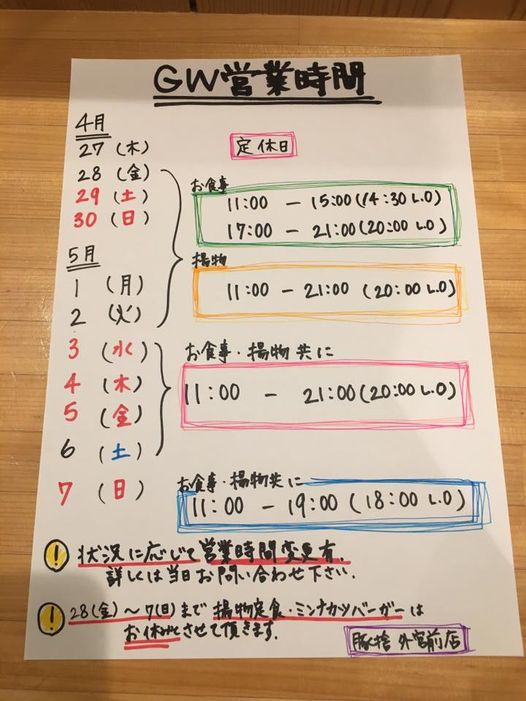 GW営業時間
4月
27(木) 定休日
28(金)
29(土)
30(日)
お食事
11:00 – 15:00(14:30 L.O)
17:00 – 21:00(20:00 L.O)
5月
1(月)
2(火)
揚物
11:00 – 21:00(20:00 L.O)
3(水)
4(木)
5(金)
6(土)
お食事・揚物共に
11:00 – 21:00(20:00 L.O)
7(日)
お食事・揚物共に
11:00 – 19:00(18:00 L.O)
! 状況に応じて営業時間変更有.
詳しくは当日お問い合わせ下さい.
! 28(金)〜7(日)まで揚物定食・ミンチカツバーガーは
お休みとさせて頂きます.
豚捨 外宮前店